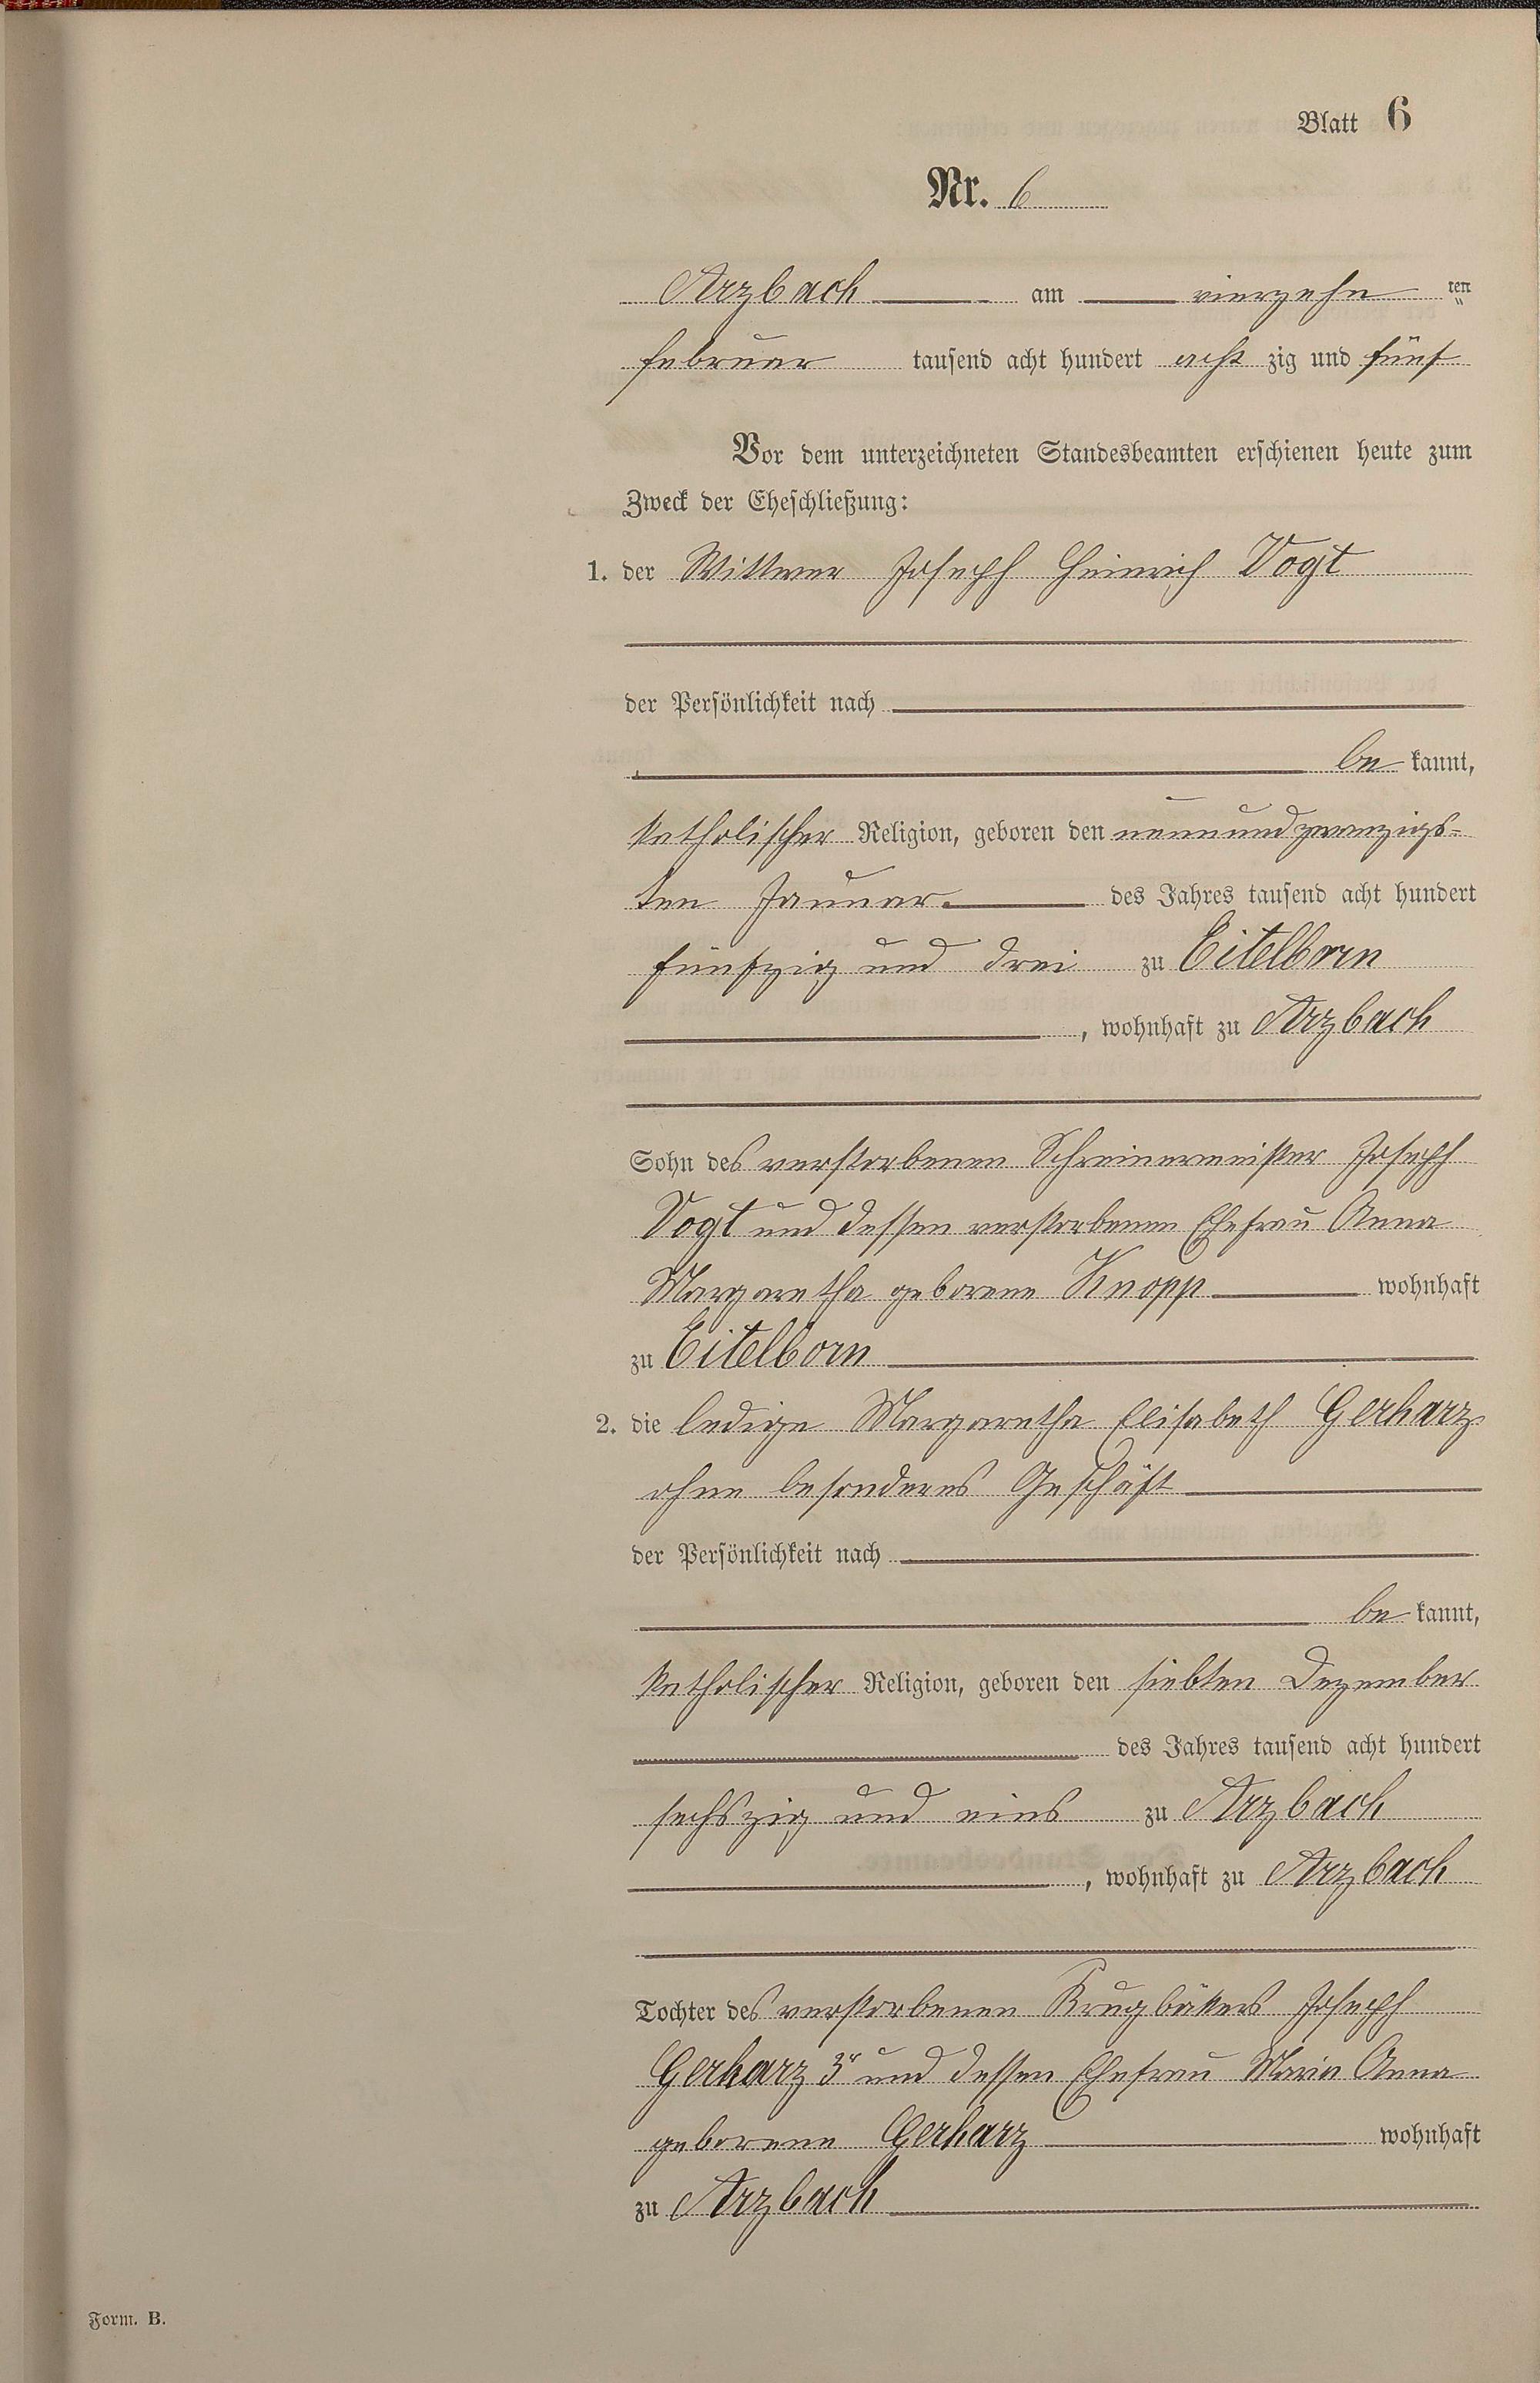 Blatt 6
Nr. 6
Arzbach am vierzehn ten
Februar tausend acht hundert acht zig und fünf
Vor dem unterzeichneten Standesbeamten erschienen heute zum
Zweck der Eheschließung:
1. der Wittwer Joseph Heinrich Vogt
der Persönlichkeit nach
be kannt,
katholischer Religion, geboren den neunundzwanzigs-
ten Januar des Jahres tausend acht hundert
fünfzig und drei zu Eitelborn
, wohnhaft zu Arzbach
Sohn des verstorbenen Schreinermeister Joseph
Vogt und dessen verstorbenen Ehefrau Anna
Margaretha geborene Knopp wohnhaft
zu Eitelborn
2. die ledige Margaretha Elisabeth Gerharz
ohne besonderes Geschäft
der Persönlichkeit nach
be kannt,
katholischer Religion, geboren den siebten Dezember
des Jahres tausend acht hundert
sechszig und eins zu Arzbach
, wohnhaft zu Arzbach
Tochter des verstorbenen Krugbäkers Joseph
Gerharz 3r und dessen Ehefrau Maria Anna
geborene Gerharz wohnhaft
zu Arzbach
Form. B.